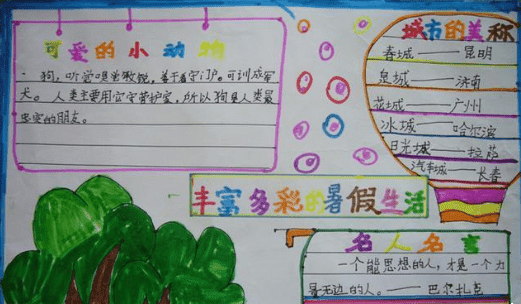 可爱的小动物
狗，听觉嗅觉敏锐，善于看守门户。可训成军
犬。人类主要用它守护家，所以狗是人类最
忠实的朋友。
丰富多彩的暑假生活
城市的美称
春城——昆明
泉城——济南
花城——广州
冰城——哈尔滨
日光城——拉萨
汽车城——长春
名人名言
一个能思想的人，才是一个力
量无边的人。——巴尔扎克